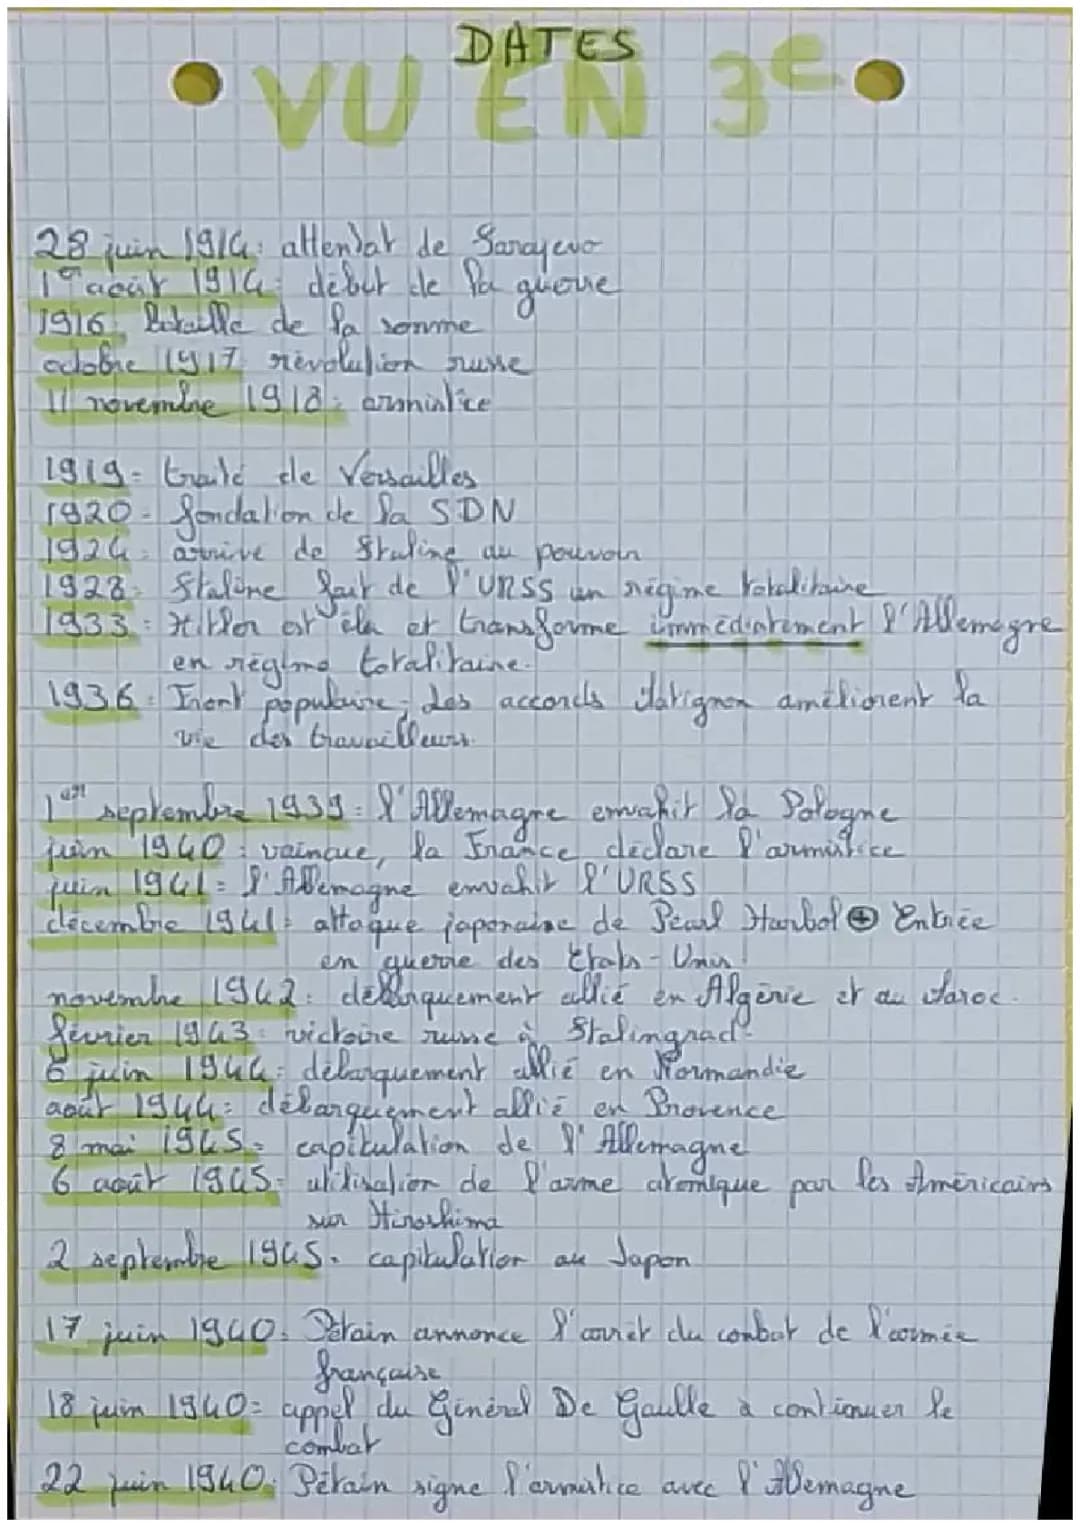 DATES
VU EN 3e
28 juin 1914: attentat de Sarajevo
1er août 1914: début de la guerre
1916: bataille de la somme
octobre 1917: révolution russe
11 novembre 1918: armistice
1919: traité de Versailles
1920: fondation de la SDN
1924: arrivé de Staline au pouvoir
1928: Staline fait de l'URSS un régime totalitaire
1933: Hitler est élu et transforme immédiatement l'Allemagne
en régime totalitaire.
1936: Front populaire; des accords Matignon améliorent la
vie des travailleurs.
1er septembre 1939: l'Allemagne envahit la Pologne
juin 1940: vaincue, la France déclare l'armistice
juin 1941: l'Allemagne envahit l'URSS
décembre 1941: attaque japonaise de Pearl Harbol ⊕ Entrée
en guerre des Etats-Unis!
novembre 1942: débarquement allié en Algérie et au Maroc.
février 1943: victoire russe à Stalingrad.
6 juin 1944: débarquement allié en Normandie
août 1944: débarquement allié en Provence
8 mai 1945: capitulation de l'Allemagne
6 août 1945: utilisation de l'arme atomique par les Américains
sur Hiroshima
2 septembre 1945: capitulation au Japon
17 juin 1940: Pétain annonce l'arrêt du combat de l'armée
française
18 juin 1940: appel du Général De Gaulle à continuer le
combat
22 juin 1940: Pétain signe l'armistice avec l'Allemagne